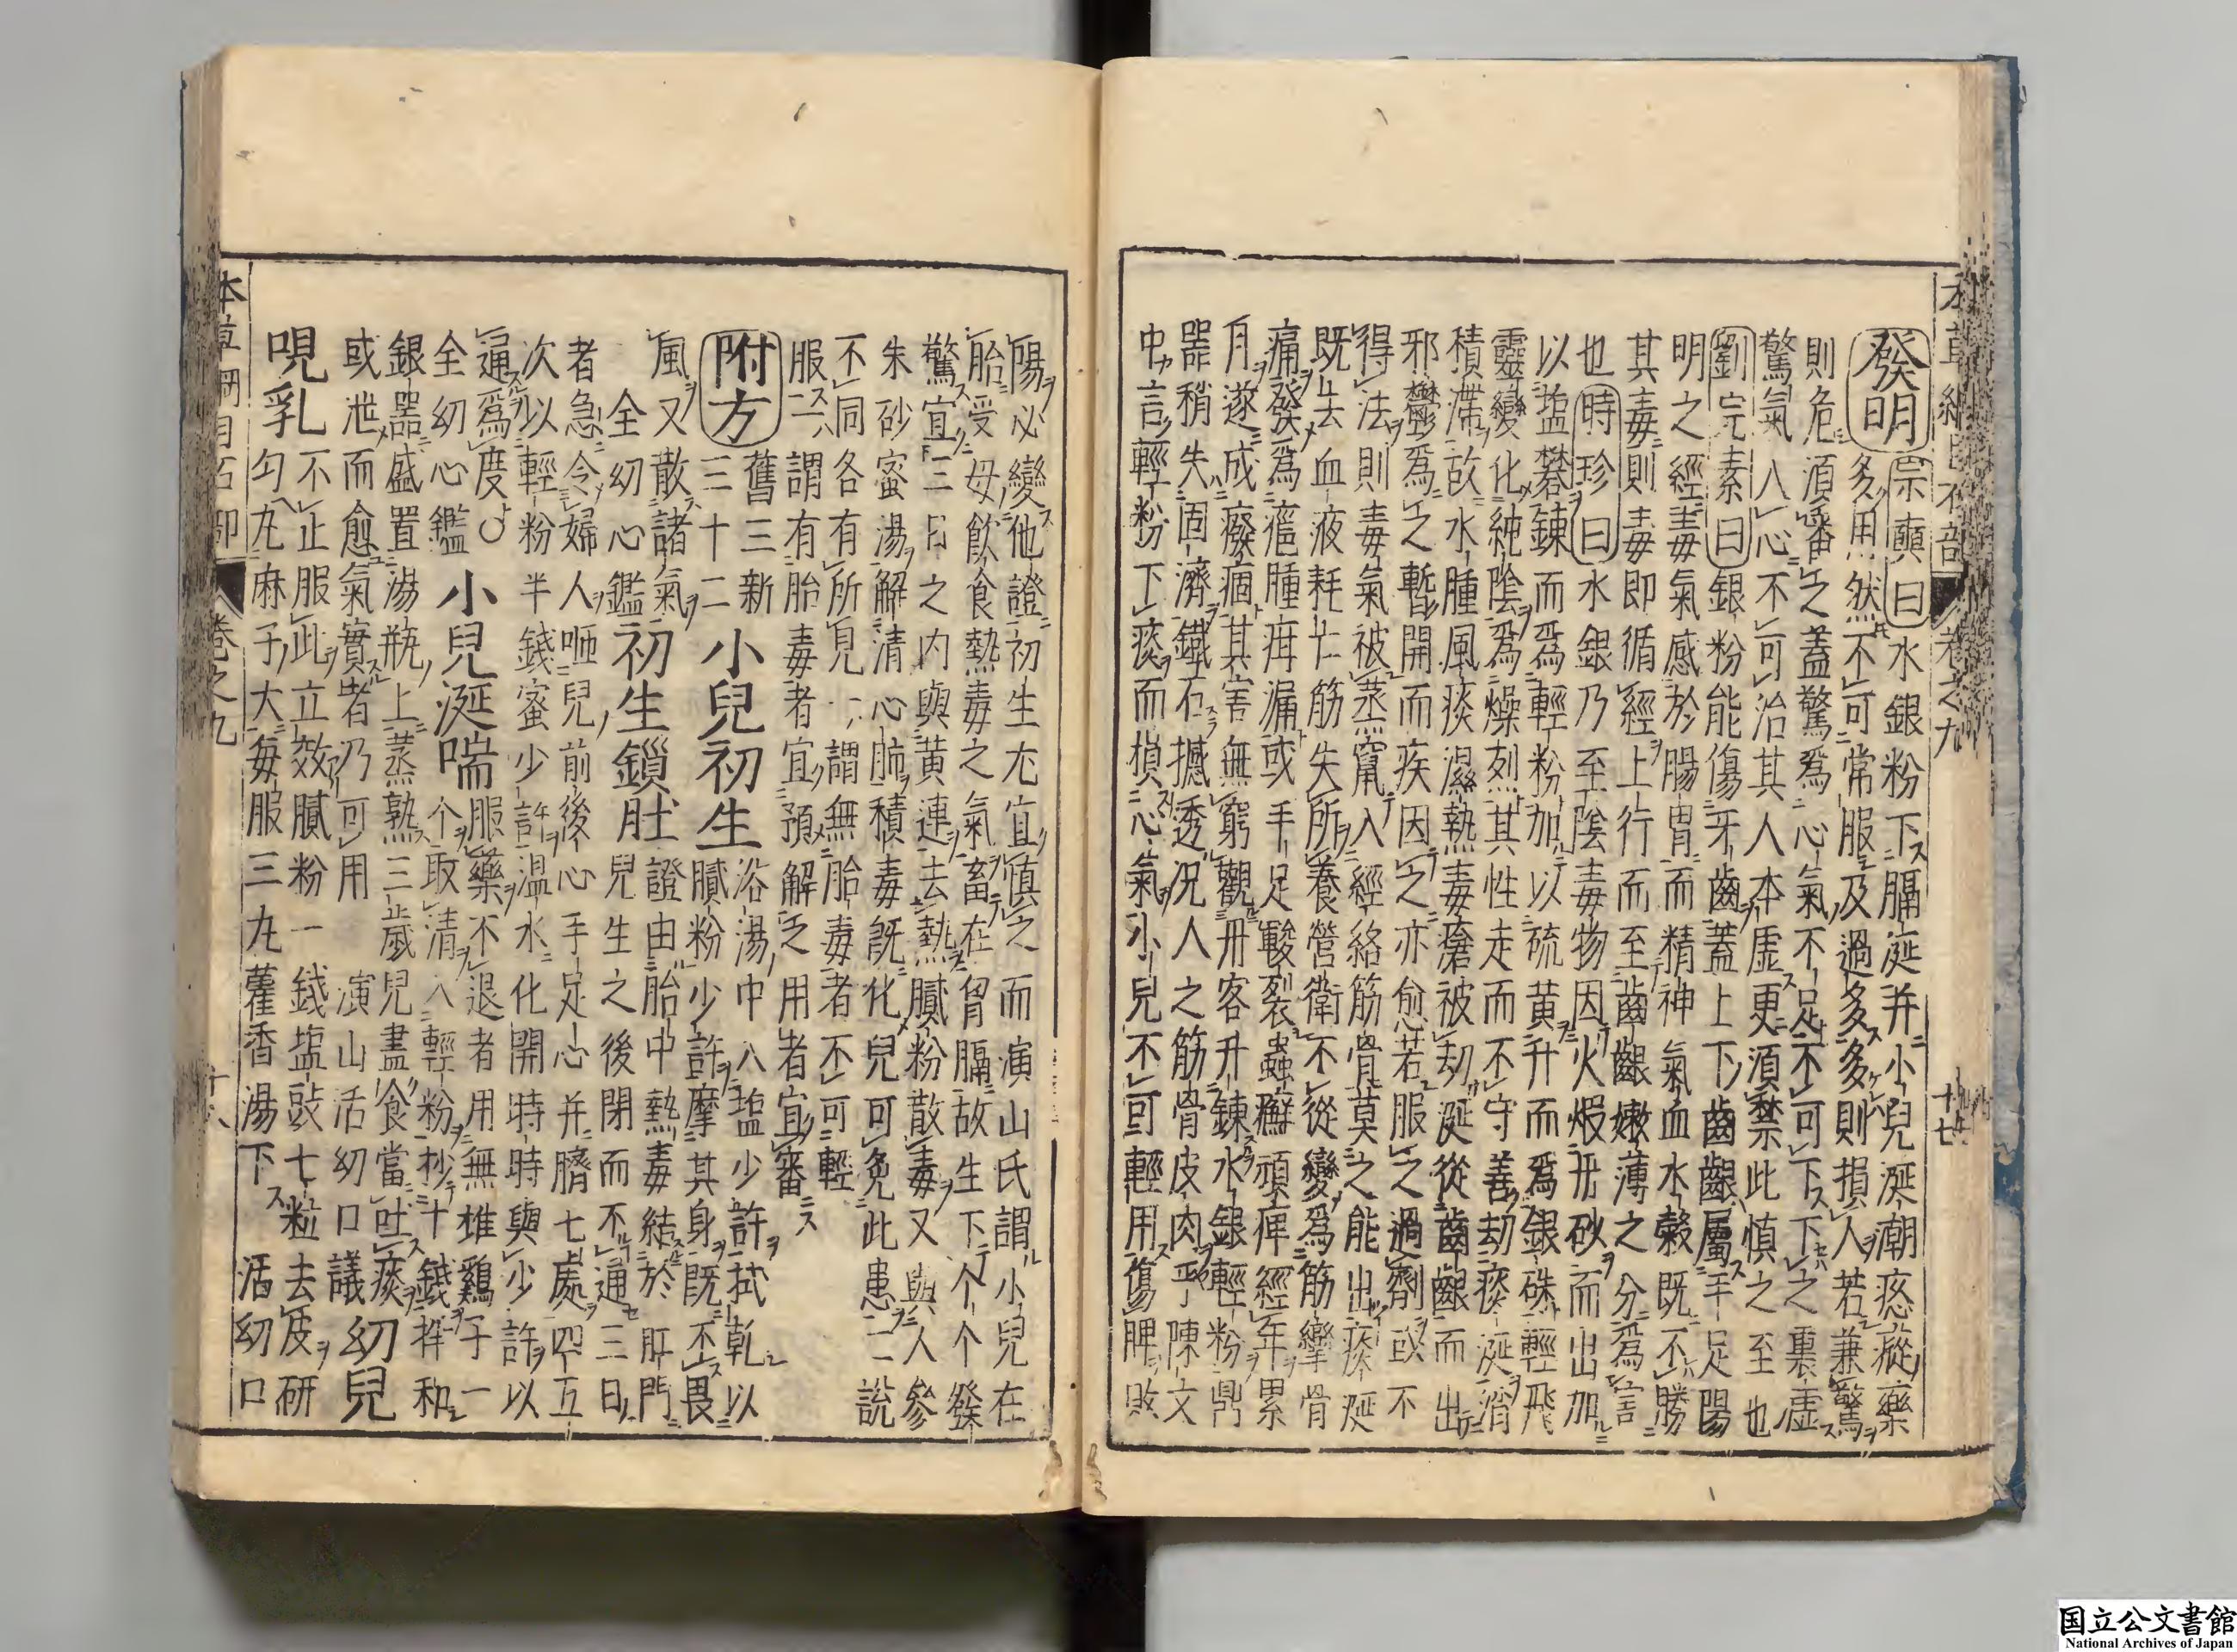 本草綱目石部 卷之九 十七
發明 宗奭曰水銀粉下膈涎并小兒涎潮瘛瘲藥
多用然不可常服及過多多則損人若兼驚
則危須審之蓋驚爲心氣不足不可下下之裏虛
驚氣入心不可治其人本虛更須禁此慎之至也
劉完素曰銀粉能傷牙齒蓋上下齒齦屬手足陽
明之經毒氣感於腸胃而精神氣血水穀既不勝
其毒則毒即循經上行而至齒齦嫩薄之分爲害
也時珍曰水銀乃至陰毒物因火煅丹砂而出加
以塩礬鍊而爲輕粉加以硫黄升而爲銀硃輕飛
靈變化純陰爲燥烈其性走而不守善劫痰涎消
積滯故水腫風痰濕熱毒瘡被劫涎從齒齦而出
邪鬱爲之暫開而疾因之亦愈若服之過劑或不
得法則毒氣被蒸竄入經絡筋骨莫之能出痰涎
既去血液耗亡筋失所養營衛不從變爲筋攣骨
痛發爲癰腫疳漏或手足皸裂蟲癬頑痺經年累
月遂成癈痼其害無窮觀丹客升鍊水銀輕粉鼎
器稍失固濟鐵石撼透况人之筋骨皮肉乎陳文
中言輕粉下痰而損心氣小兒不可輕用傷脾敗
陽必變他證初生尤宜慎之而演山氏謂小兒在
胎受母飲食熱毒之氣畜在胷膈故生下个个發
驚宜三日之内與黄連去熱膩粉散毒又與人參
朱砂蜜湯解清心肺積毒既化兒可免此患二說
不同各有所見一謂無胎毒者不可輕
服一謂有胎毒者宜預解之用者宜審
附方 舊三新三十二 小兒初生 浴湯中入塩少許拭乾以
膩粉少許摩其身既不畏
風又散諸氣 全幼心鑑 初生鎖肚 證由胎中熱毒結於肛門
兒生之後閉而不通三日
者急令婦人咂兒前後心手足心并臍七處四五
次以輕粉半錢蜜少許温水化開時時與少許以
通爲度〇全幼心鑑 小兒涎喘 服藥不退者用無雄鷄子一
个取清入輕粉抄十錢拌和
銀器盛置湯瓶上蒸熟三歲兒盡食當吐痰
或泄而愈氣實者乃可用 演山活幼口議 幼兒
哯乳 不止服此立效膩粉一錢塩豉七粒去皮研
匀丸麻子大每服三丸藿香湯下 活幼口
本草綱目石部 卷之九 十八
国立公文書館
National Archives of Japan